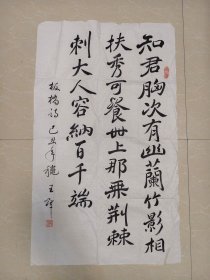 知君胸次有幽蘭竹影相
扶秀可餐世上那無荆棘
刺大人容納百千端
板橋詩 己丑年 王